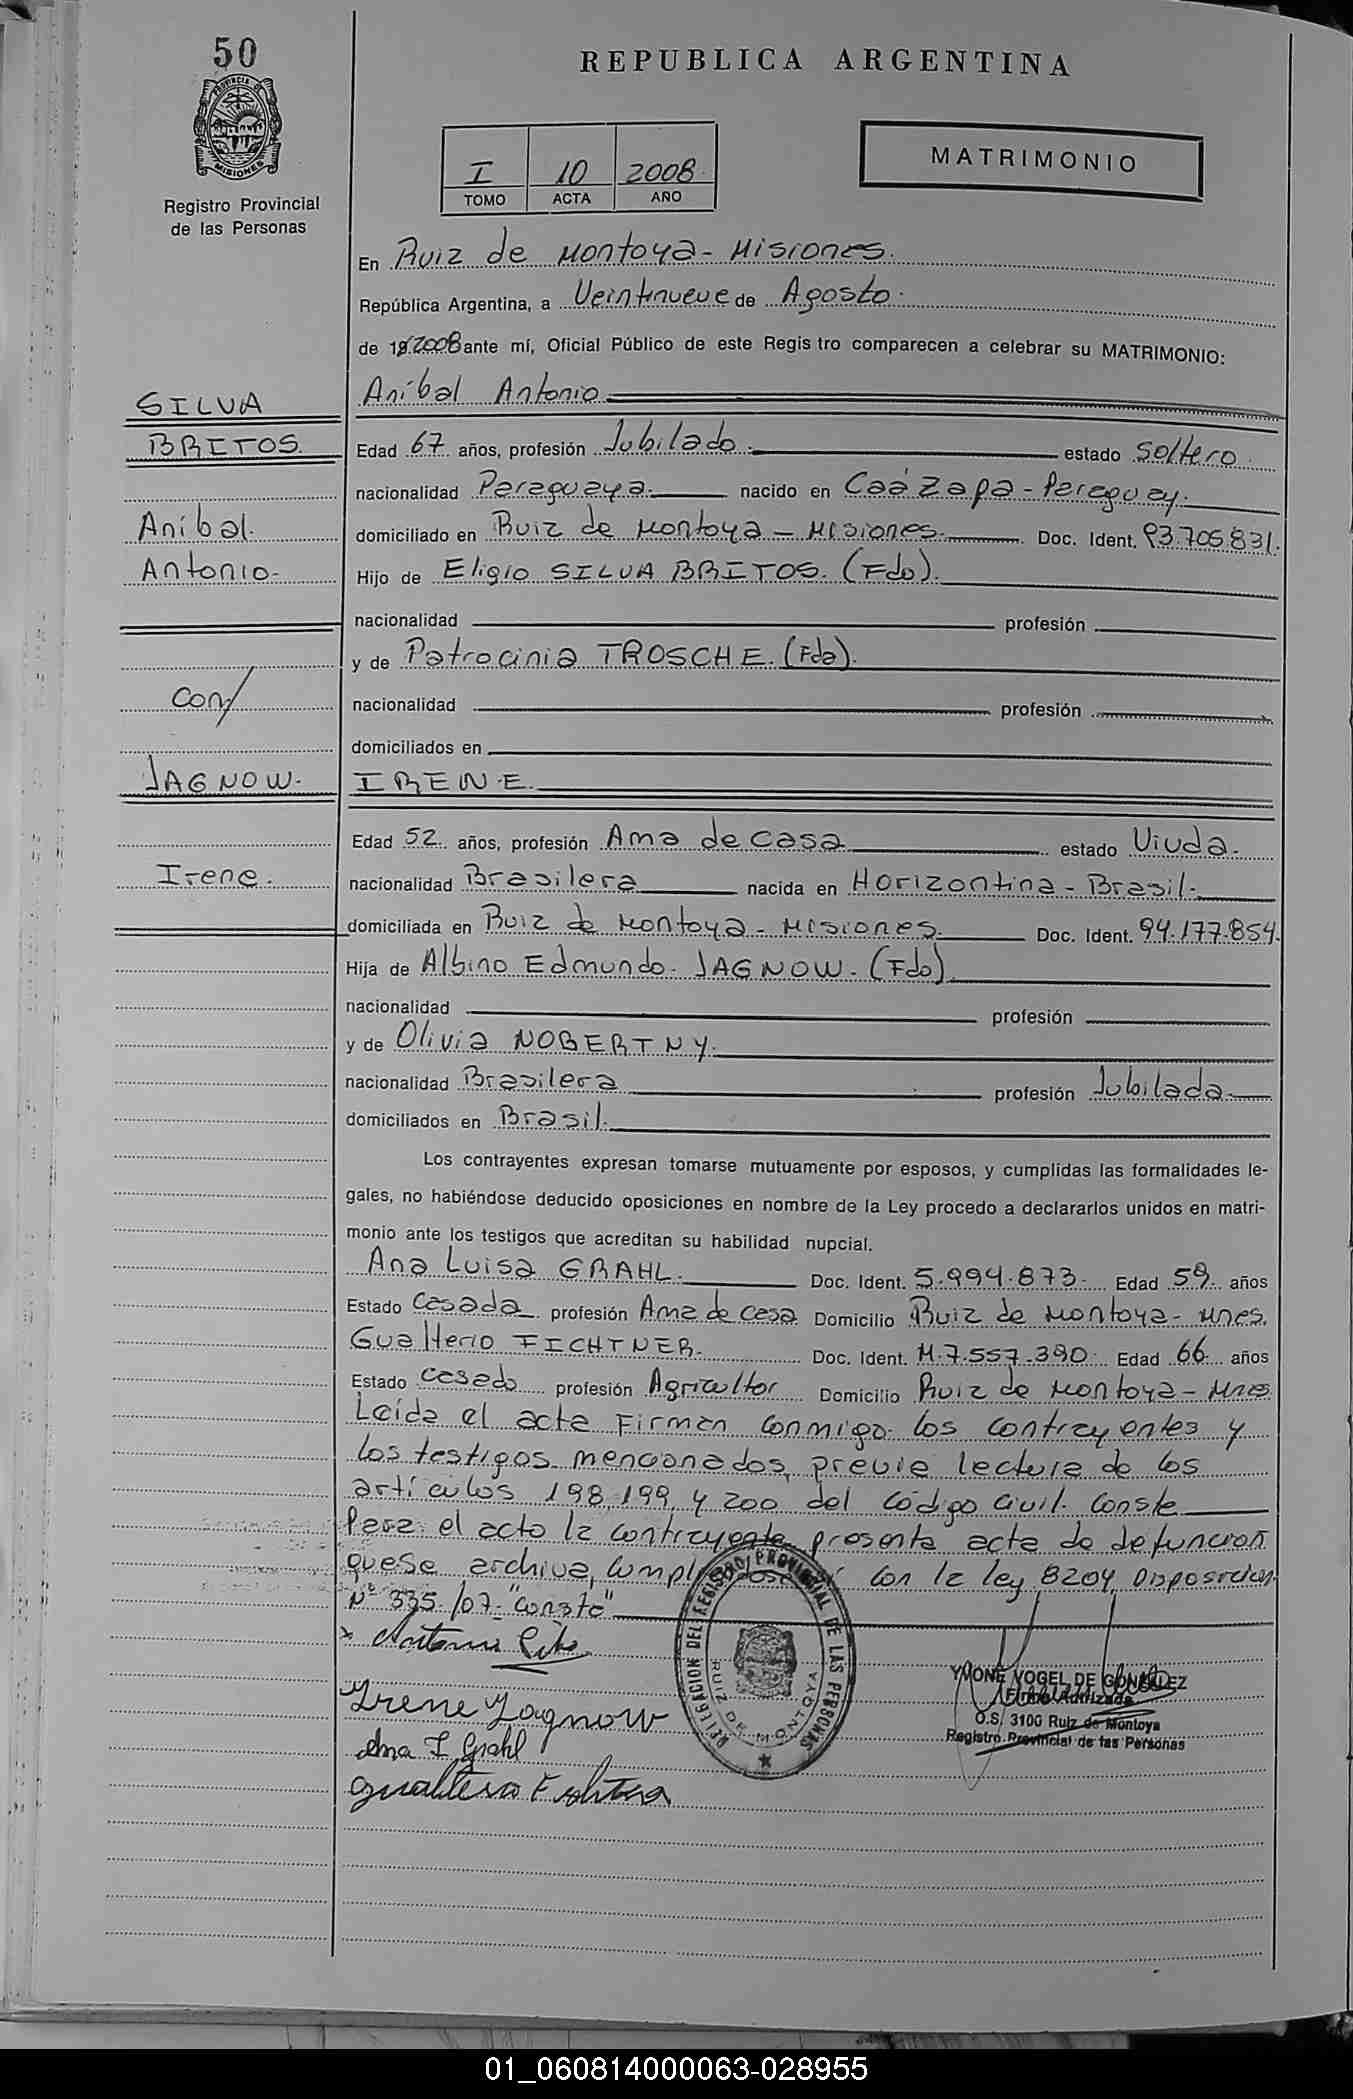 50
REPUBLICA ARGENTINA
PROVINCIA DE
MISIONES
Registro Provincial
de las Personas
I 10 2008
TOMO ACTA AÑO
MATRIMONIO
En Ruiz de Montoya - Misiones.
República Argentina, a Veintinueve de Agosto.
de 19 2008 ante mí, Oficial Público de este Regis tro comparecen a celebrar su MATRIMONIO:
SILVA
Aníbal Antonio
BRITOS.
Edad 67 años, profesión Jubilado. estado Soltero.
nacionalidad Paraguaya. nacido en Caázapa - Paraguay.
Aníbal.
domiciliado en Ruiz de Montoya - Misiones. Doc. Ident. 93.705.831.
Antonio.
Hijo de Eligio SILVA BRITOS. (Fdo).
nacionalidad profesión
y de Patrocinia TROSCHE. (Fda).
con/
nacionalidad profesión
domiciliados en
JAGNOW.
IRENE.
Edad 52 años, profesión Ama de casa estado Viuda.
Irene.
nacionalidad Brasilera nacida en Horizontina - Brasil.
domiciliada en Ruiz de Montoya - Misiones. Doc. Ident. 94.177.854.
Hija de Albino Edmundo JAGNOW. (Fdo)
nacionalidad profesión
y de Olivia NOBERTNY.
nacionalidad Brasilera profesión Jubilada.
domiciliados en Brasil.
Los contrayentes expresan tomarse mutuamente por esposos, y cumplidas las formalidades le-
gales, no habiéndose deducido oposiciones en nombre de la Ley procedo a declararlos unidos en matri-
monio ante los testigos que acreditan su habilidad nupcial.
Ana Luisa GRAHL. Doc. Ident. 5.994.873. Edad 59 años
Estado Casada profesión Ama de casa Domicilio Ruiz de Montoya - Mnes.
Gualterio FICHTNER. Doc. Ident. M.7.557.390 Edad 66 años
Estado Casado profesión Agricultor Domicilio Ruiz de Montoya - Mnes
Leída el acta Firman conmigo los contrayentes y
los testigos mencionados, previa lectura de los
artículos 198, 199, y 200 del código civil. Conste
Para el acto la contrayente presenta acta de defunción
que se archiva, con la ley 8204, Disposición
Nº 335/07 "Conste"
x Antonio
Irene Jagnow
Ana L Grahl
Gualterio
DELEGACION DEL REGISTRO PROVINCIAL DE LAS PERSONAS
RUIZ DE MONTOYA
YVONE VOGEL DE GONZALEZ
O.S. 3100 Ruiz de Montoya
Registro Provincial de las Personas
01_060814000063-028955